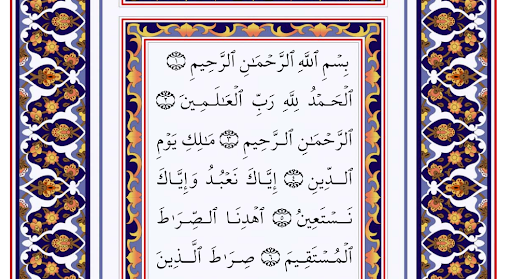 بِسْمِ ٱللَّهِ ٱلرَّحْمَـٰنِ ٱلرَّحِيمِ ۝١
ٱلْحَمْدُ لِلَّهِ رَبِّ ٱلْعَـٰلَمِينَ ۝٢
ٱلرَّحْمَـٰنِ ٱلرَّحِيمِ ۝٣ مَـٰلِكِ يَوْمِ
ٱلدِّينِ ۝٤ إِيَّاكَ نَعْبُدُ وَإِيَّاكَ
نَسْتَعِينُ ۝٥ ٱهْدِنَا ٱلصِّرَٰطَ
ٱلْمُسْتَقِيمَ ۝٦ صِرَٰطَ ٱلَّذِينَ